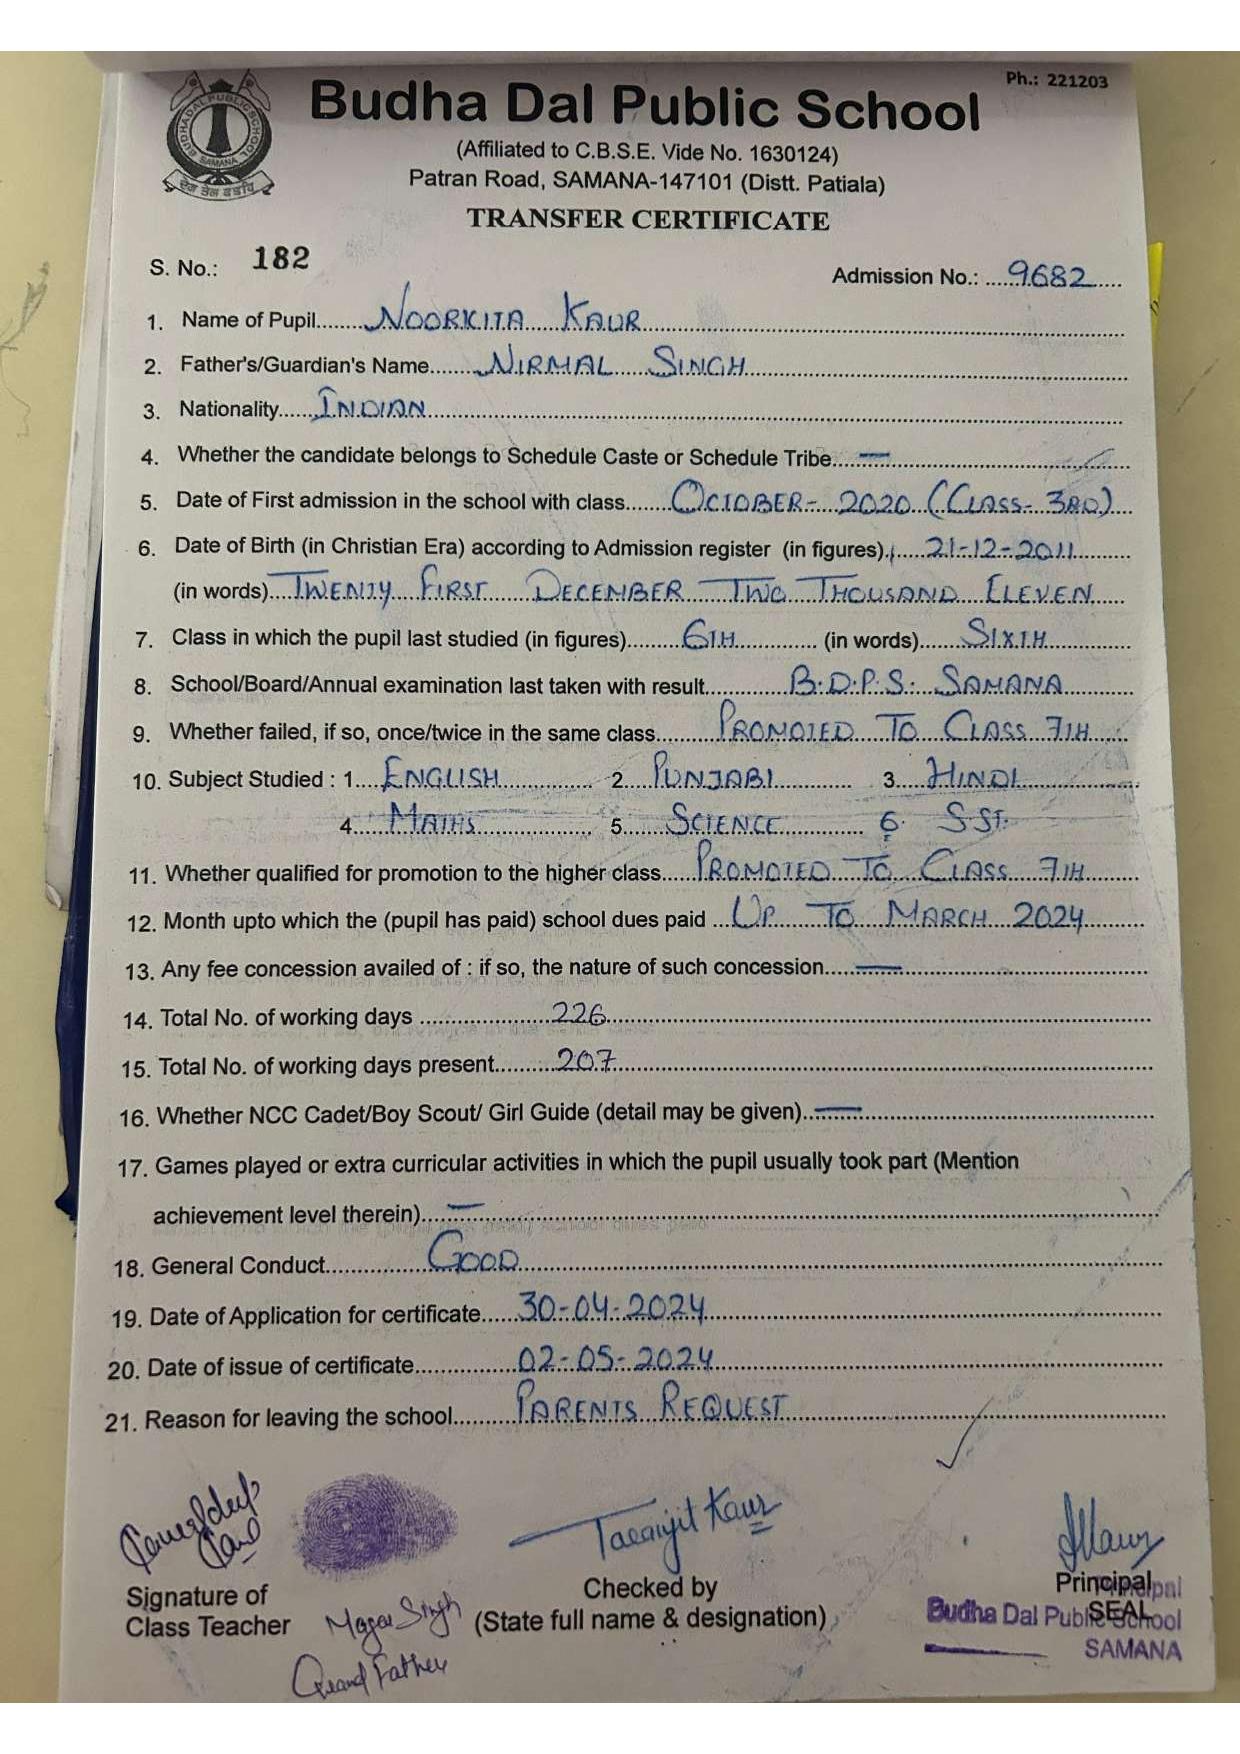 Ph.: 221203
BUDHA DAL PUBLIC SCHOOL
SAMANA
Budha Dal Public School
(Affiliated to C.B.S.E. Vide No. 1630124)
Patran Road, SAMANA-147101 (Distt. Patiala)
TRANSFER CERTIFICATE
S. No.: 182
Admission No.: ......9682......
1. Name of Pupil........NOORKITA KAUR
2. Father's/Guardian's Name........NIRMAL SINGH
3. Nationality......INDIAN
4. Whether the candidate belongs to Schedule Caste or Schedule Tribe....—
5. Date of First admission in the school with class........OCTOBER- 2020 (CLASS- 3RD)
6. Date of Birth (in Christian Era) according to Admission register (in figures)......21-12-2011
(in words)....TWENTY FIRST DECEMBER TWO THOUSAND ELEVEN
7. Class in which the pupil last studied (in figures)........6TH (in words)........SIXTH
8. School/Board/Annual examination last taken with result........B.D.P.S. SAMANA
9. Whether failed, if so, once/twice in the same class........PROMOTED TO CLASS 7TH
10. Subject Studied : 1....ENGLISH 2....PUNJABI 3....HINDI
4......MATHS 5......SCIENCE 6. S.ST.
11. Whether qualified for promotion to the higher class......PROMOTED TO CLASS 7TH
12. Month upto which the (pupil has paid) school dues paid ...UP TO MARCH 2024
13. Any fee concession availed of : if so, the nature of such concession......—
14. Total No. of working days ........226
15. Total No. of working days present........207
16. Whether NCC Cadet/Boy Scout/ Girl Guide (detail may be given)...—
17. Games played or extra curricular activities in which the pupil usually took part (Mention
achievement level therein)....—
18. General Conduct........GOOD
19. Date of Application for certificate......30-04-2024
20. Date of issue of certificate........02-05-2024
21. Reason for leaving the school........PARENTS REQUEST
Kaur
Signature of
Class Teacher
Singh
Grand Father
Kaur
Checked by
(State full name & designation)
Principal
SEAL
Principal
Budha Dal Public School
SAMANA